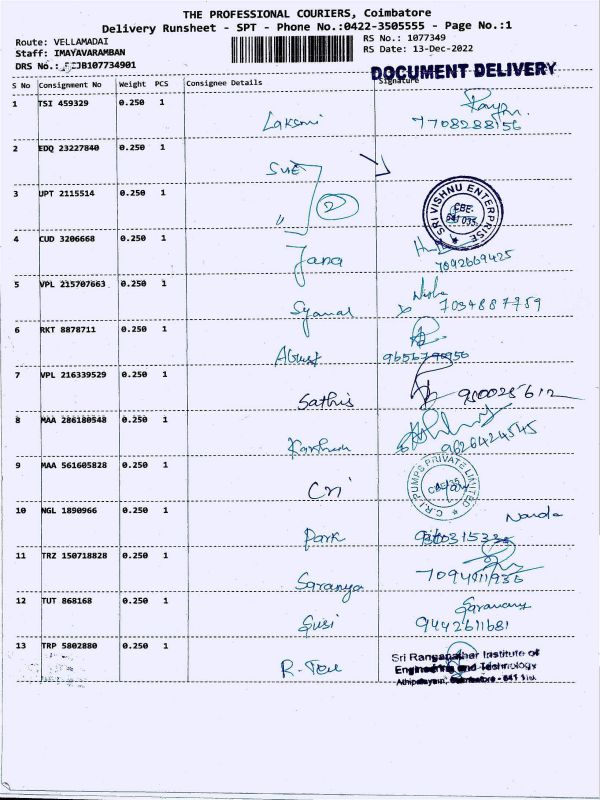 THE PROFESSIONAL COURIERS, Coimbatore
Delivery Runsheet - SPT - Phone No.:0422-3505555 - Page No.:1
Route: VELLAMADAI
RS No.: 1077349
Staff: IMAYAVARAMBAN
RS Date: 13-Dec-2022
DRS No.: JB107734901
DOCUMENT DELIVERY
S No Consignment No Weight PCS Consignee Details Signature
1 TSI 459329 0.250 1 Laksmi 7708288156
2 EDQ 23227840 0.250 1
3 UPT 2115514 0.250 1 " 2 SRI VISHNU ENTERPRISE CBE. 641 035.
4 CUD 3206668 0.250 1 Jana 7092669425
5 VPL 215707663 0.250 1 Syamal Nisha 7094887759
6 RKT 8878711 0.250 1
7 VPL 216339529 0.250 1 Sathis
8 MAA 286180548 0.250 1
9 MAA 561605828 0.250 1 Cri C.R.I PUMPS PRIVATE LIMITED
10 NGL 1890966 0.250 1 Park Nanda
11 TRZ 150718828 0.250 1 Saranya
12 TUT 868168 0.250 1 Susi 9442611681
13 TRP 5802880 0.250 1
Sri Ranganathar Institute of
Engineering and Technology
Athipalayam, Coimbatore - 641 110